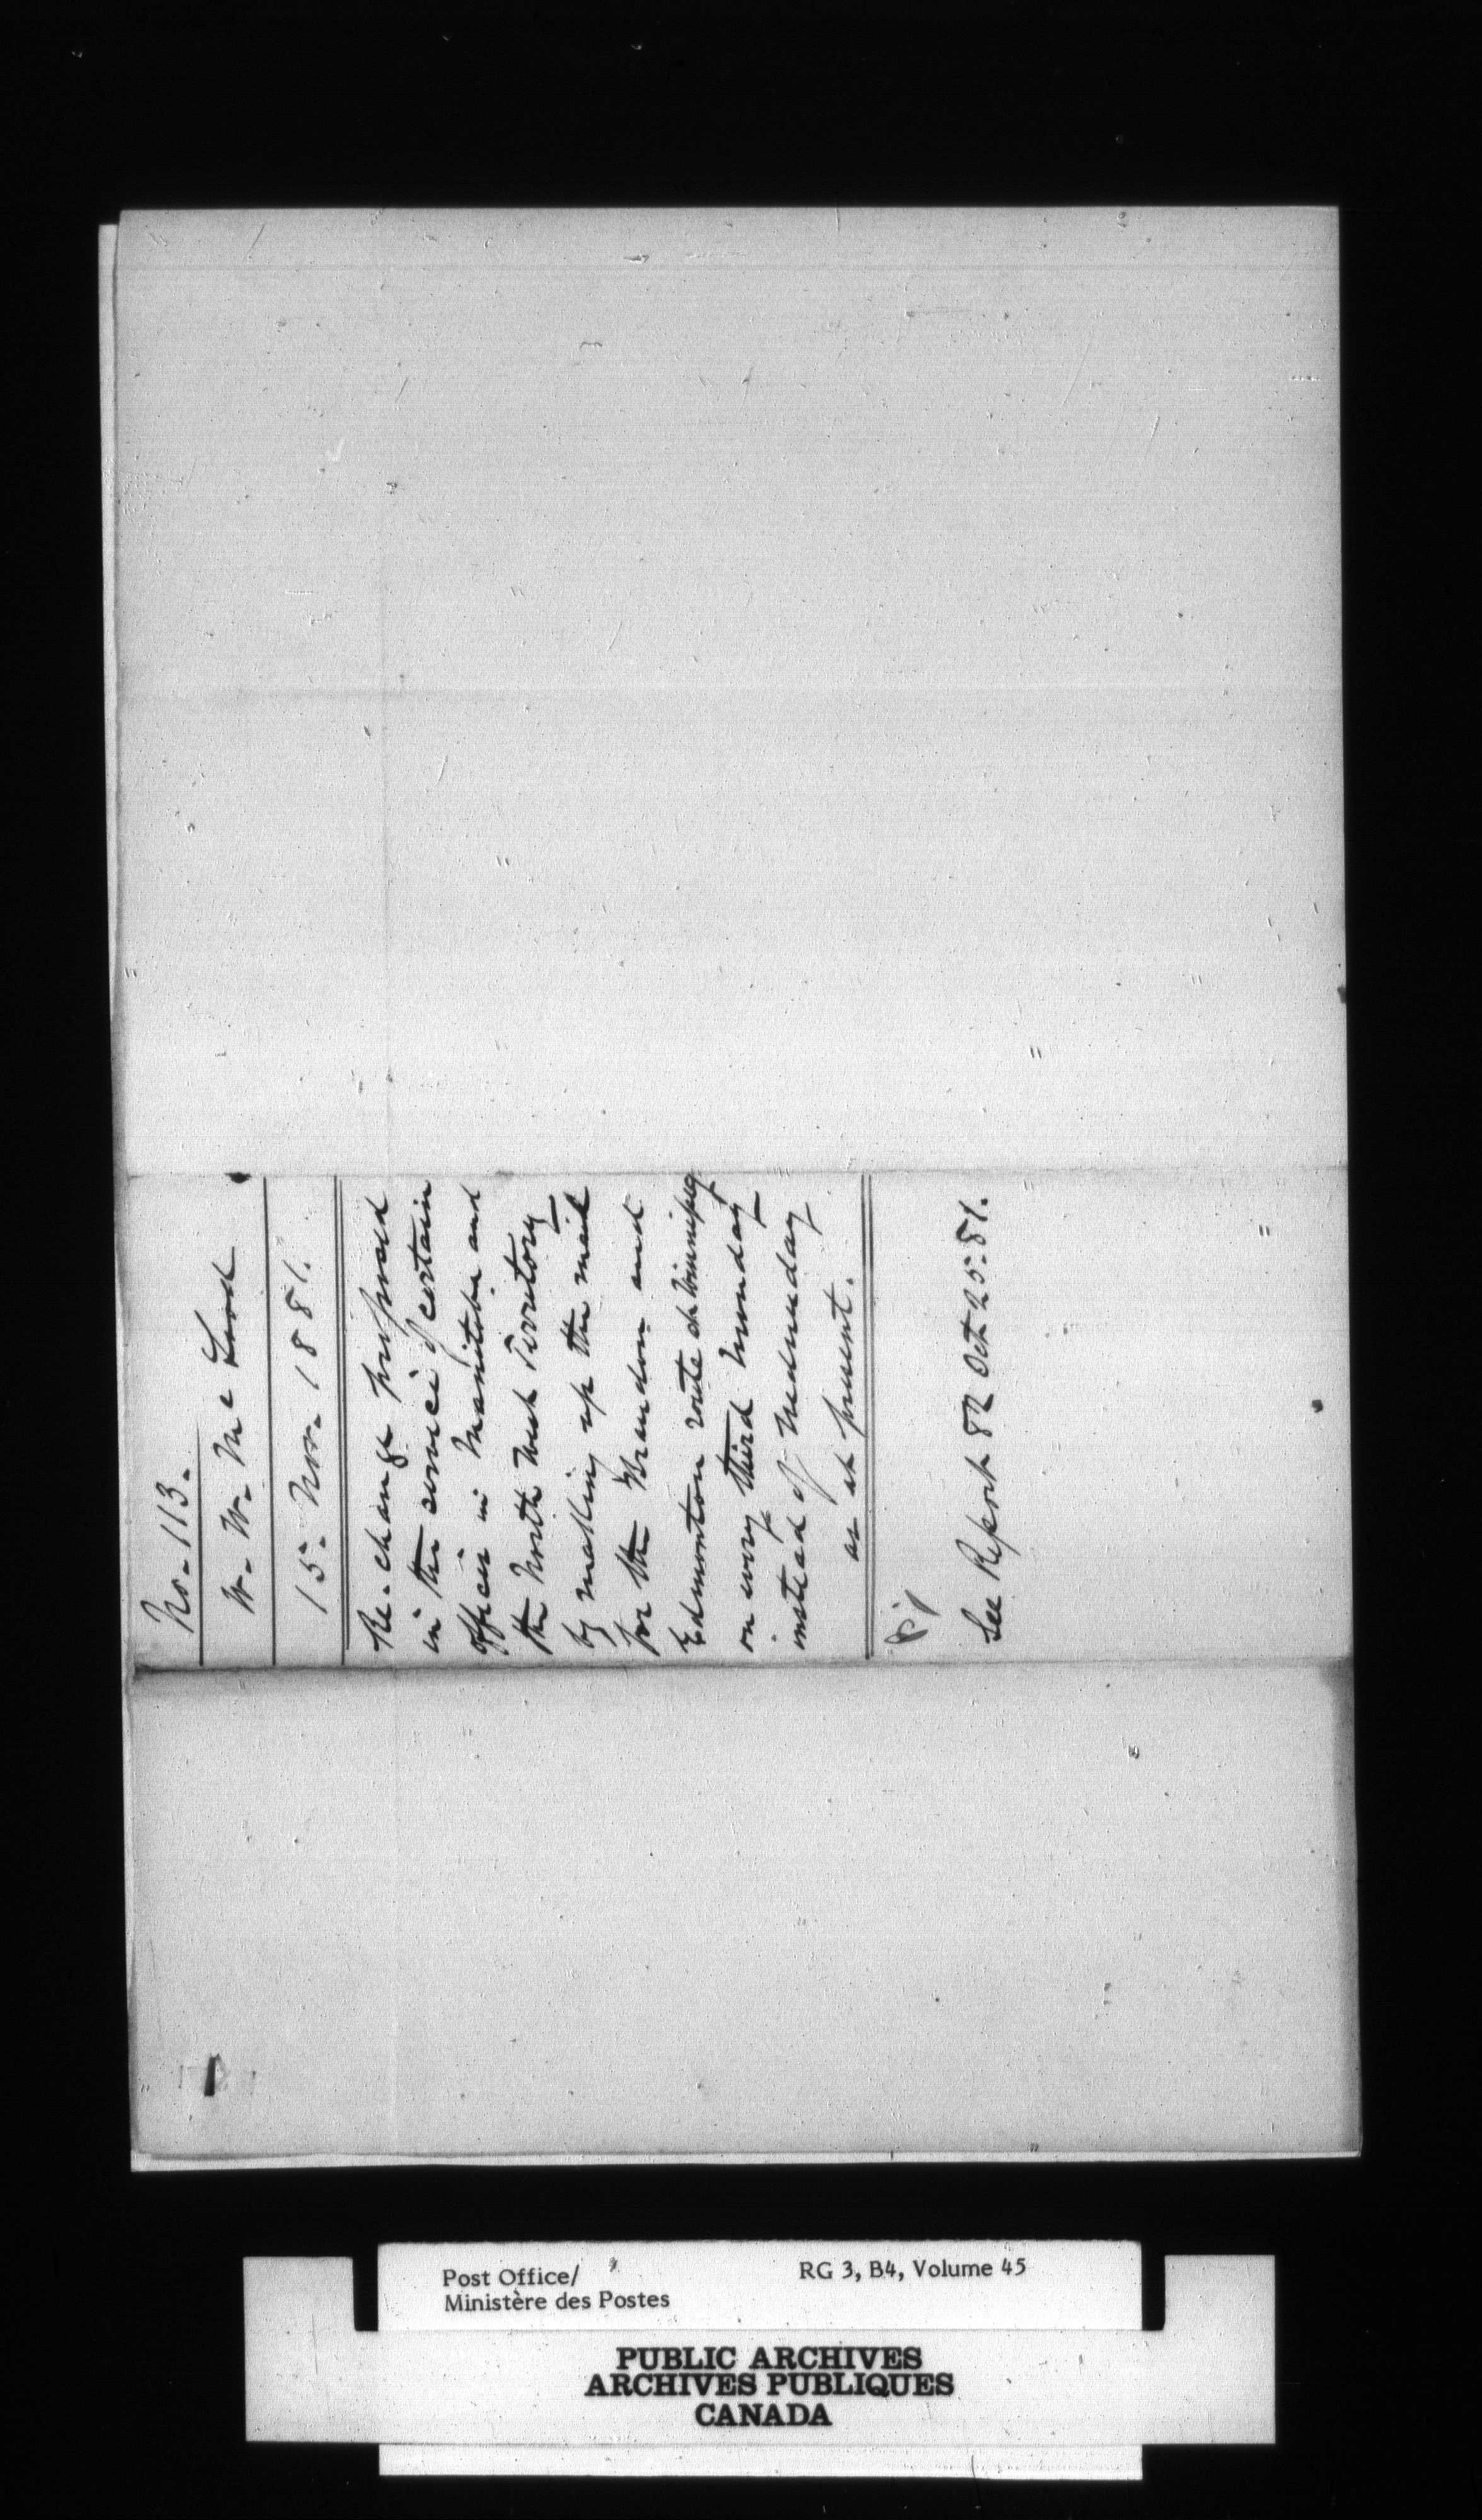 No. 113.
W. W. McLeod
15. Nov. 1881.
Re. change proposed
in the service of certain
offices in Manitoba and
the North West Territory
by making up the mail
for the Brandon and
Edmonton route at Winnipeg
on every third Monday
instead of Wednesday
as at present.
See Report 82 Oct 25. 81.
Post Office/
Ministère des Postes
RG 3, B4, Volume 45
PUBLIC ARCHIVES
ARCHIVES PUBLIQUES
CANADA